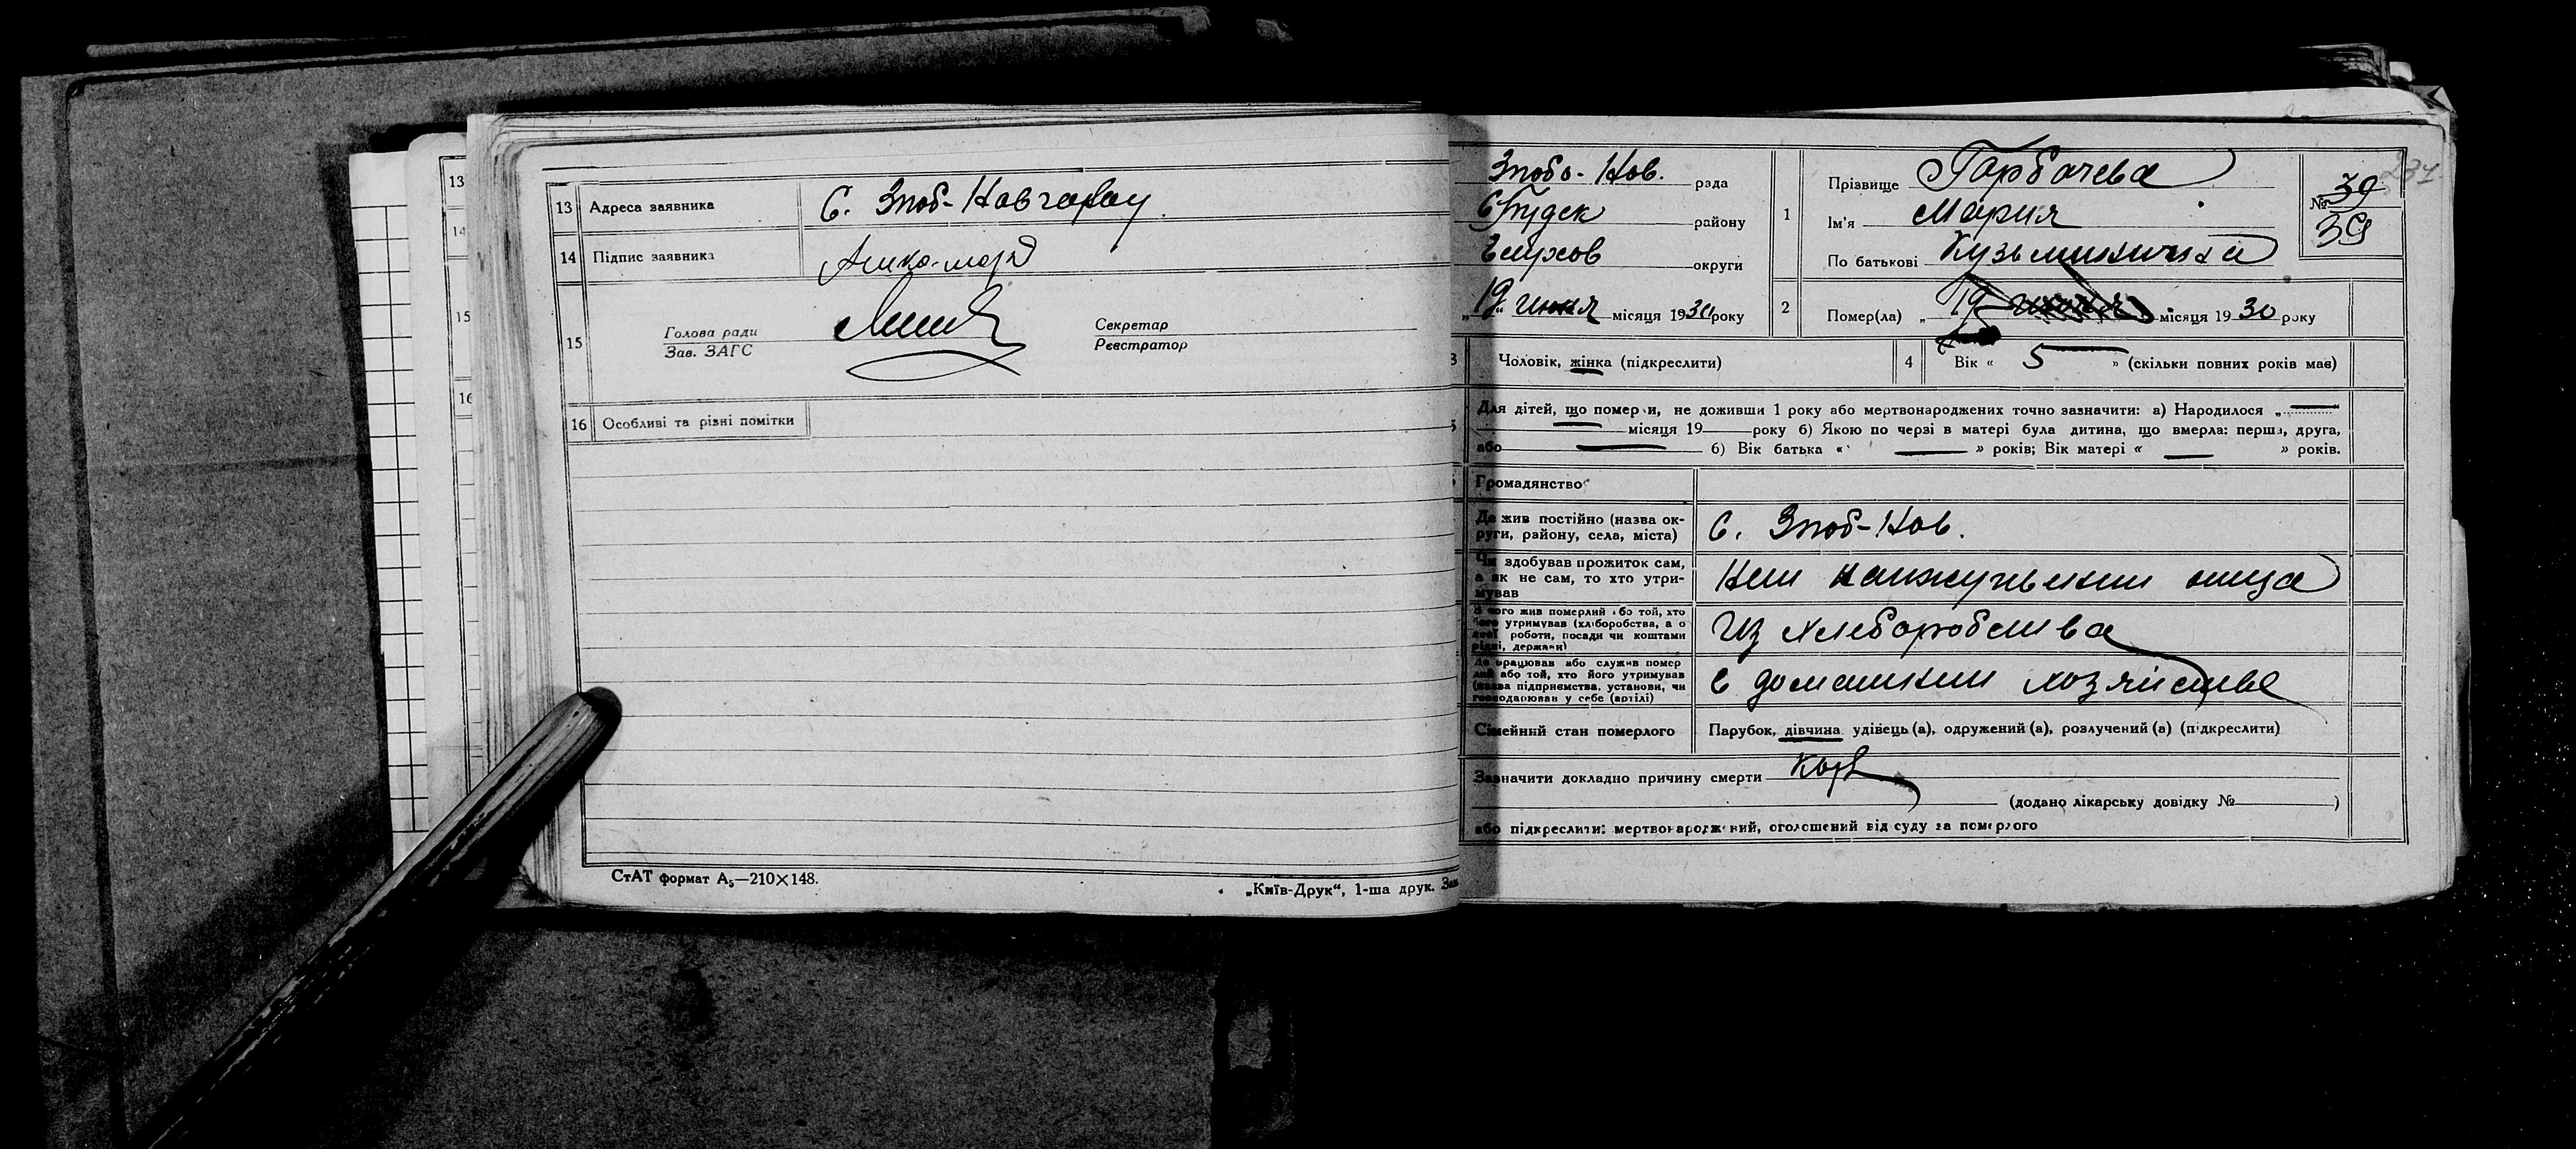 13
14
15
16
13 Адреса заявника С. Зноб-Новгород
14 Підпис заявника
15 Голова ради Секретар
Зав. ЗАГС Реєстратор
16 Особливі та різні помітки
СтАТ формат А₅—210×148.
„Київ-Друк“, 1-ша друк. Зам
Знобо-Нов. рада
С Будск району
Глухов округи
„19“ июня місяця 1930 року
1 Прізвище Горбачева
Ім'я Мария
По батькові Кузьминична
№ 39
39
237
2 Помер(ла) „19 июня місяця 1930 року
3 Чоловік, жінка (підкреслити)
4 Вік « 5 » (скільки повних років мав)
Для дітей, що померли, не доживши 1 року або мертвонароджених точно зазначити: а) Народилося „ — “
місяця 19 — року б) Якою по черзі в матері була дитина, що вмерла: перша, друга,
або — б) Вік батька « — » років; Вік матері « — » років.
Громадянство
Де жив постійно (назва ок-
руги, району, села, міста) С. Зноб-Нов.
Чи здобував прожиток сам,
а як не сам, то хто утри-
мував
З чого жив померлий або той, хто
його утримував (хліборобства, а о
якої роботи, посади чи коштами
рідні, держави) Из хлеборобства
Де працював або служив помер
лий або той, хто його утримував
(назва підприємства, установи, чи
господарював у себе (артілі) в домашнем хозяйстве
Сімейний стан померлого Парубок, дівчина, удівець (а), одружений (а), розлучений (а) (підкреслити)
Зазначити докладно причину смерти Корь
(додано лікарську довідку № )
або підкреслити: мертвонароджений, оголошений від суду за померлого